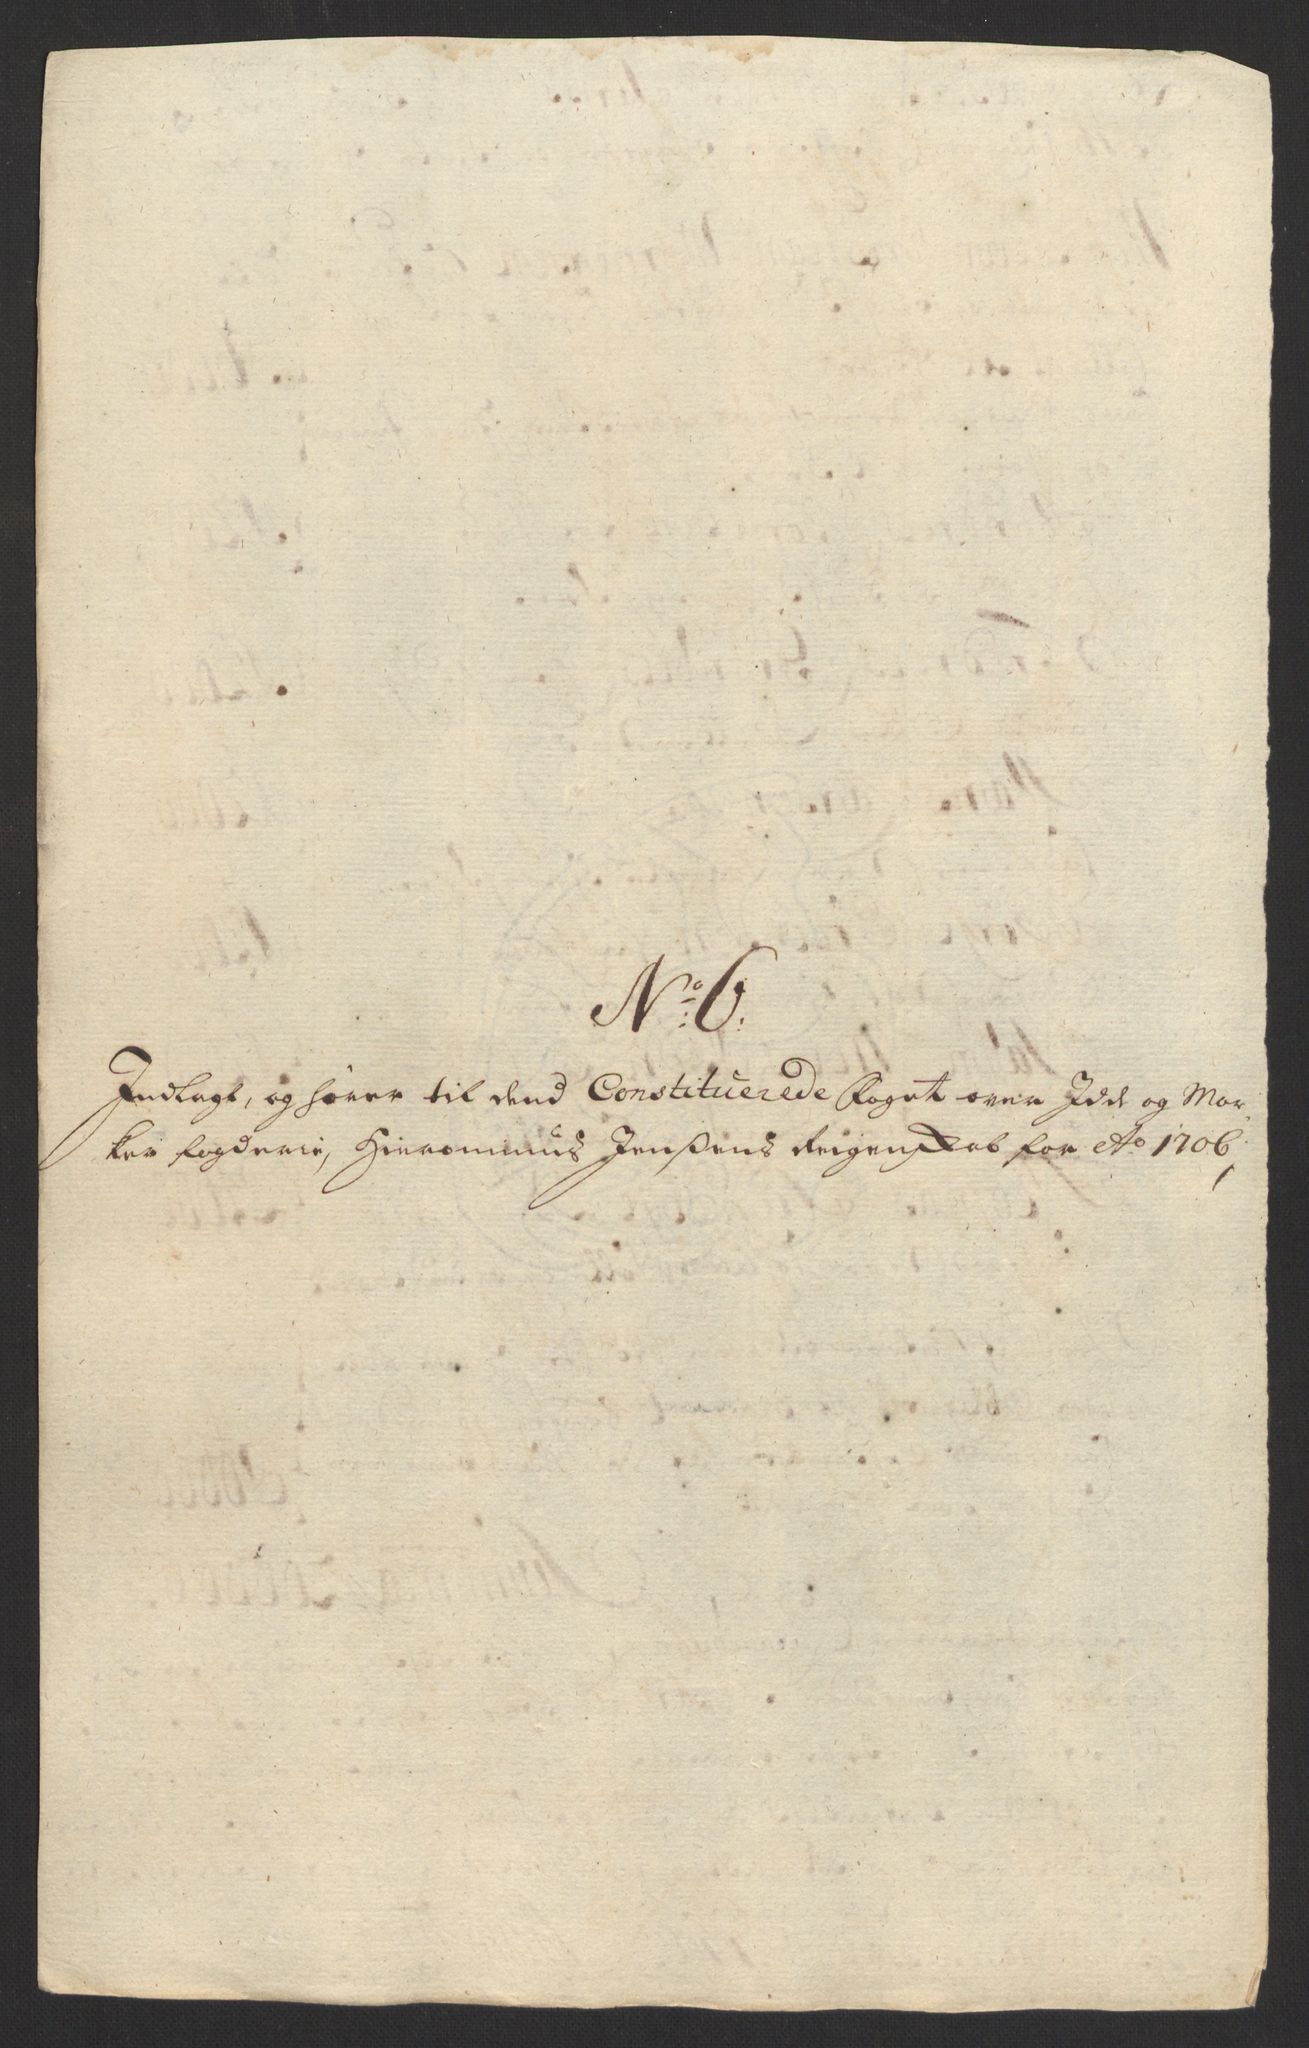 No: 6.
Indlagt, og hører til dend Constituerede Foget over Idde og Mar-
ker fogderie, Hieronimus Jenßens Reigenskab for Ao 1706